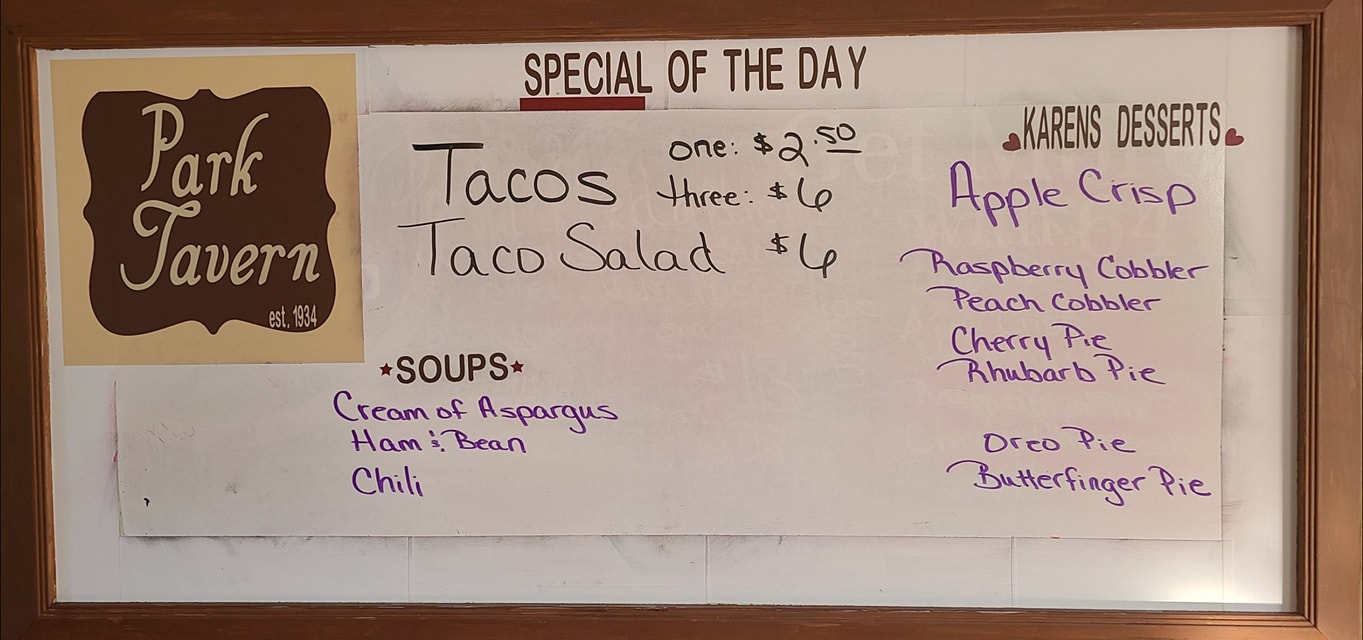 Park
Tavern
est. 1934
SPECIAL OF THE DAY
Tacos one: $2.50
three: $6
Taco Salad $6
SOUPS
Cream of Aspargus
Ham & Bean
Chili
KARENS DESSERTS
Apple Crisp
Raspberry Cobbler
Peach Cobbler
Cherry Pie
Rhubarb Pie
Oreo Pie
Butterfinger Pie